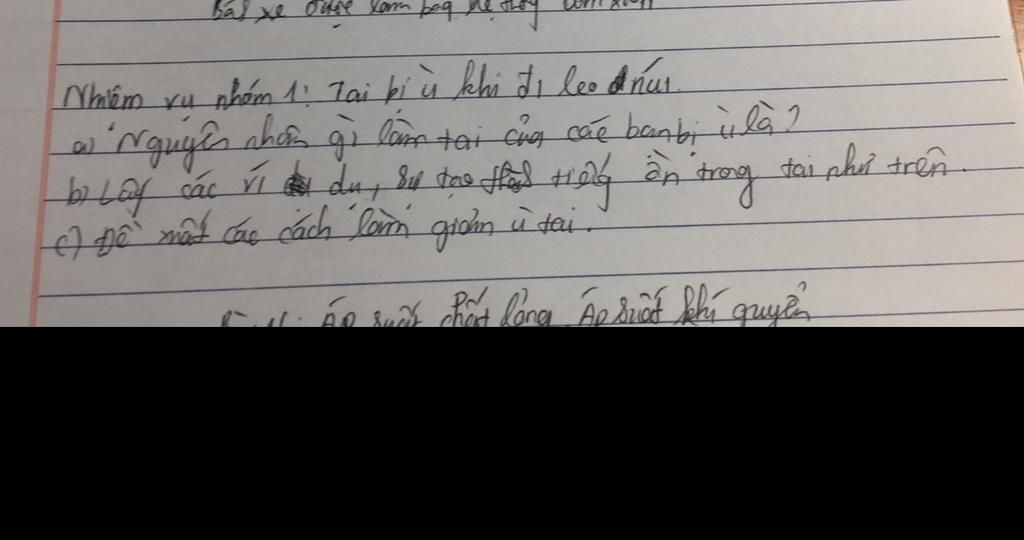 Bầy xe được làm bag hệ thống
Nhiệm vụ nhóm 1: Tai bị ù khi đi leo núi
a) Nguyên nhân gì làm tai của các bạn bị ù là?
b) Lấy các ví dụ, sự tạo tiếng ồn trong tai như trên.
c) Đề mất các cách làm giảm ù tai.
Áp suất chất lỏng Áp suất khí quyển